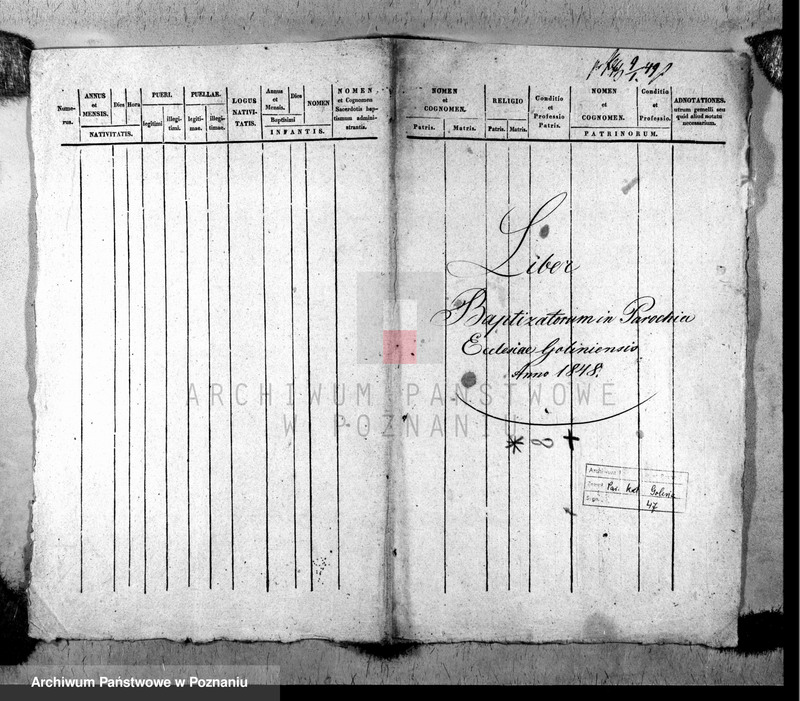 Nume-
rus.
ANNUS
et
MENSIS.
Dies
Hora
NATIVITATIS.
PUERI.
legitimi
illegi-
timi.
PUELLAE.
legiti-
mae.
illegi-
timae.
LOCUS
NATIVI-
TATIS.
Annus
et
Mensis.
Dies
Baptismi
NOMEN
INFANTIS.
NOMEN
et Cognomen
Sacerdotis bap-
tismum admini-
strantis.
NOMEN
et
COGNOMEN.
Patris.
Matris.
RELIGIO
Patris.
Matris.
Conditio
et
Professio
Patris.
NOMEN
et
COGNOMEN.
Conditio
et
Professio.
PATRINORUM.
ADNOTATIONES.
utrum gemelli seu
quid aliud notatu
necessarium.
Liber
Baptizatorum in Parochia
Ecclesiae Goliniensis
Anno 1848.
* ∞ +
Archiwum
Zespół Par. kat. Golina
Sygn. 47
ARCHIWUM PAŃSTWOWE
W POZNANIU
Archiwum Państwowe w Poznaniu